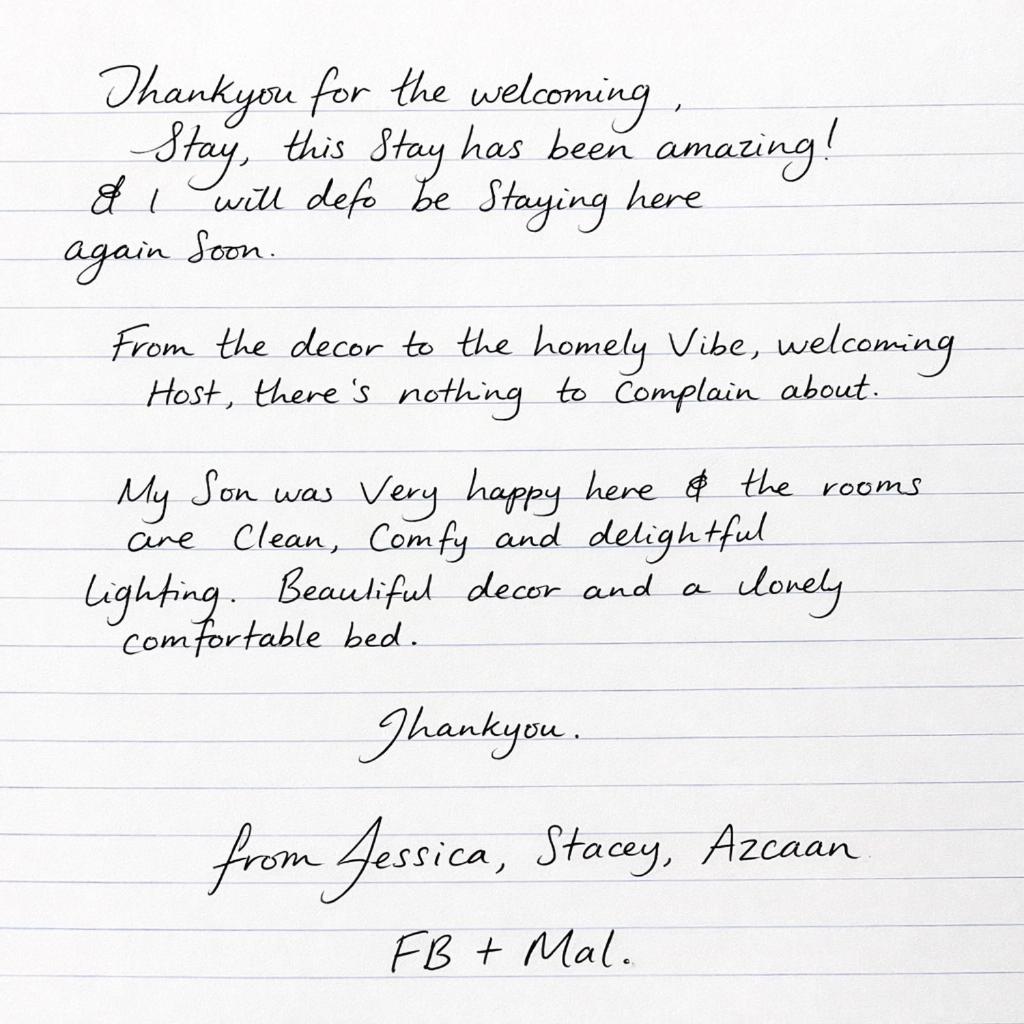 Thankyou for the welcoming,
Stay, this Stay has been amazing!
& I will defo be Staying here
again Soon.
From the decor to the homely Vibe, welcoming
Host, there's nothing to Complain about.
My Son was Very happy here & the rooms
are Clean, Comfy and delightful
lighting. Beautiful decor and a lovely
comfortable bed.
Thankyou.
from Jessica, Stacey, Azcaan
FB + Mal.